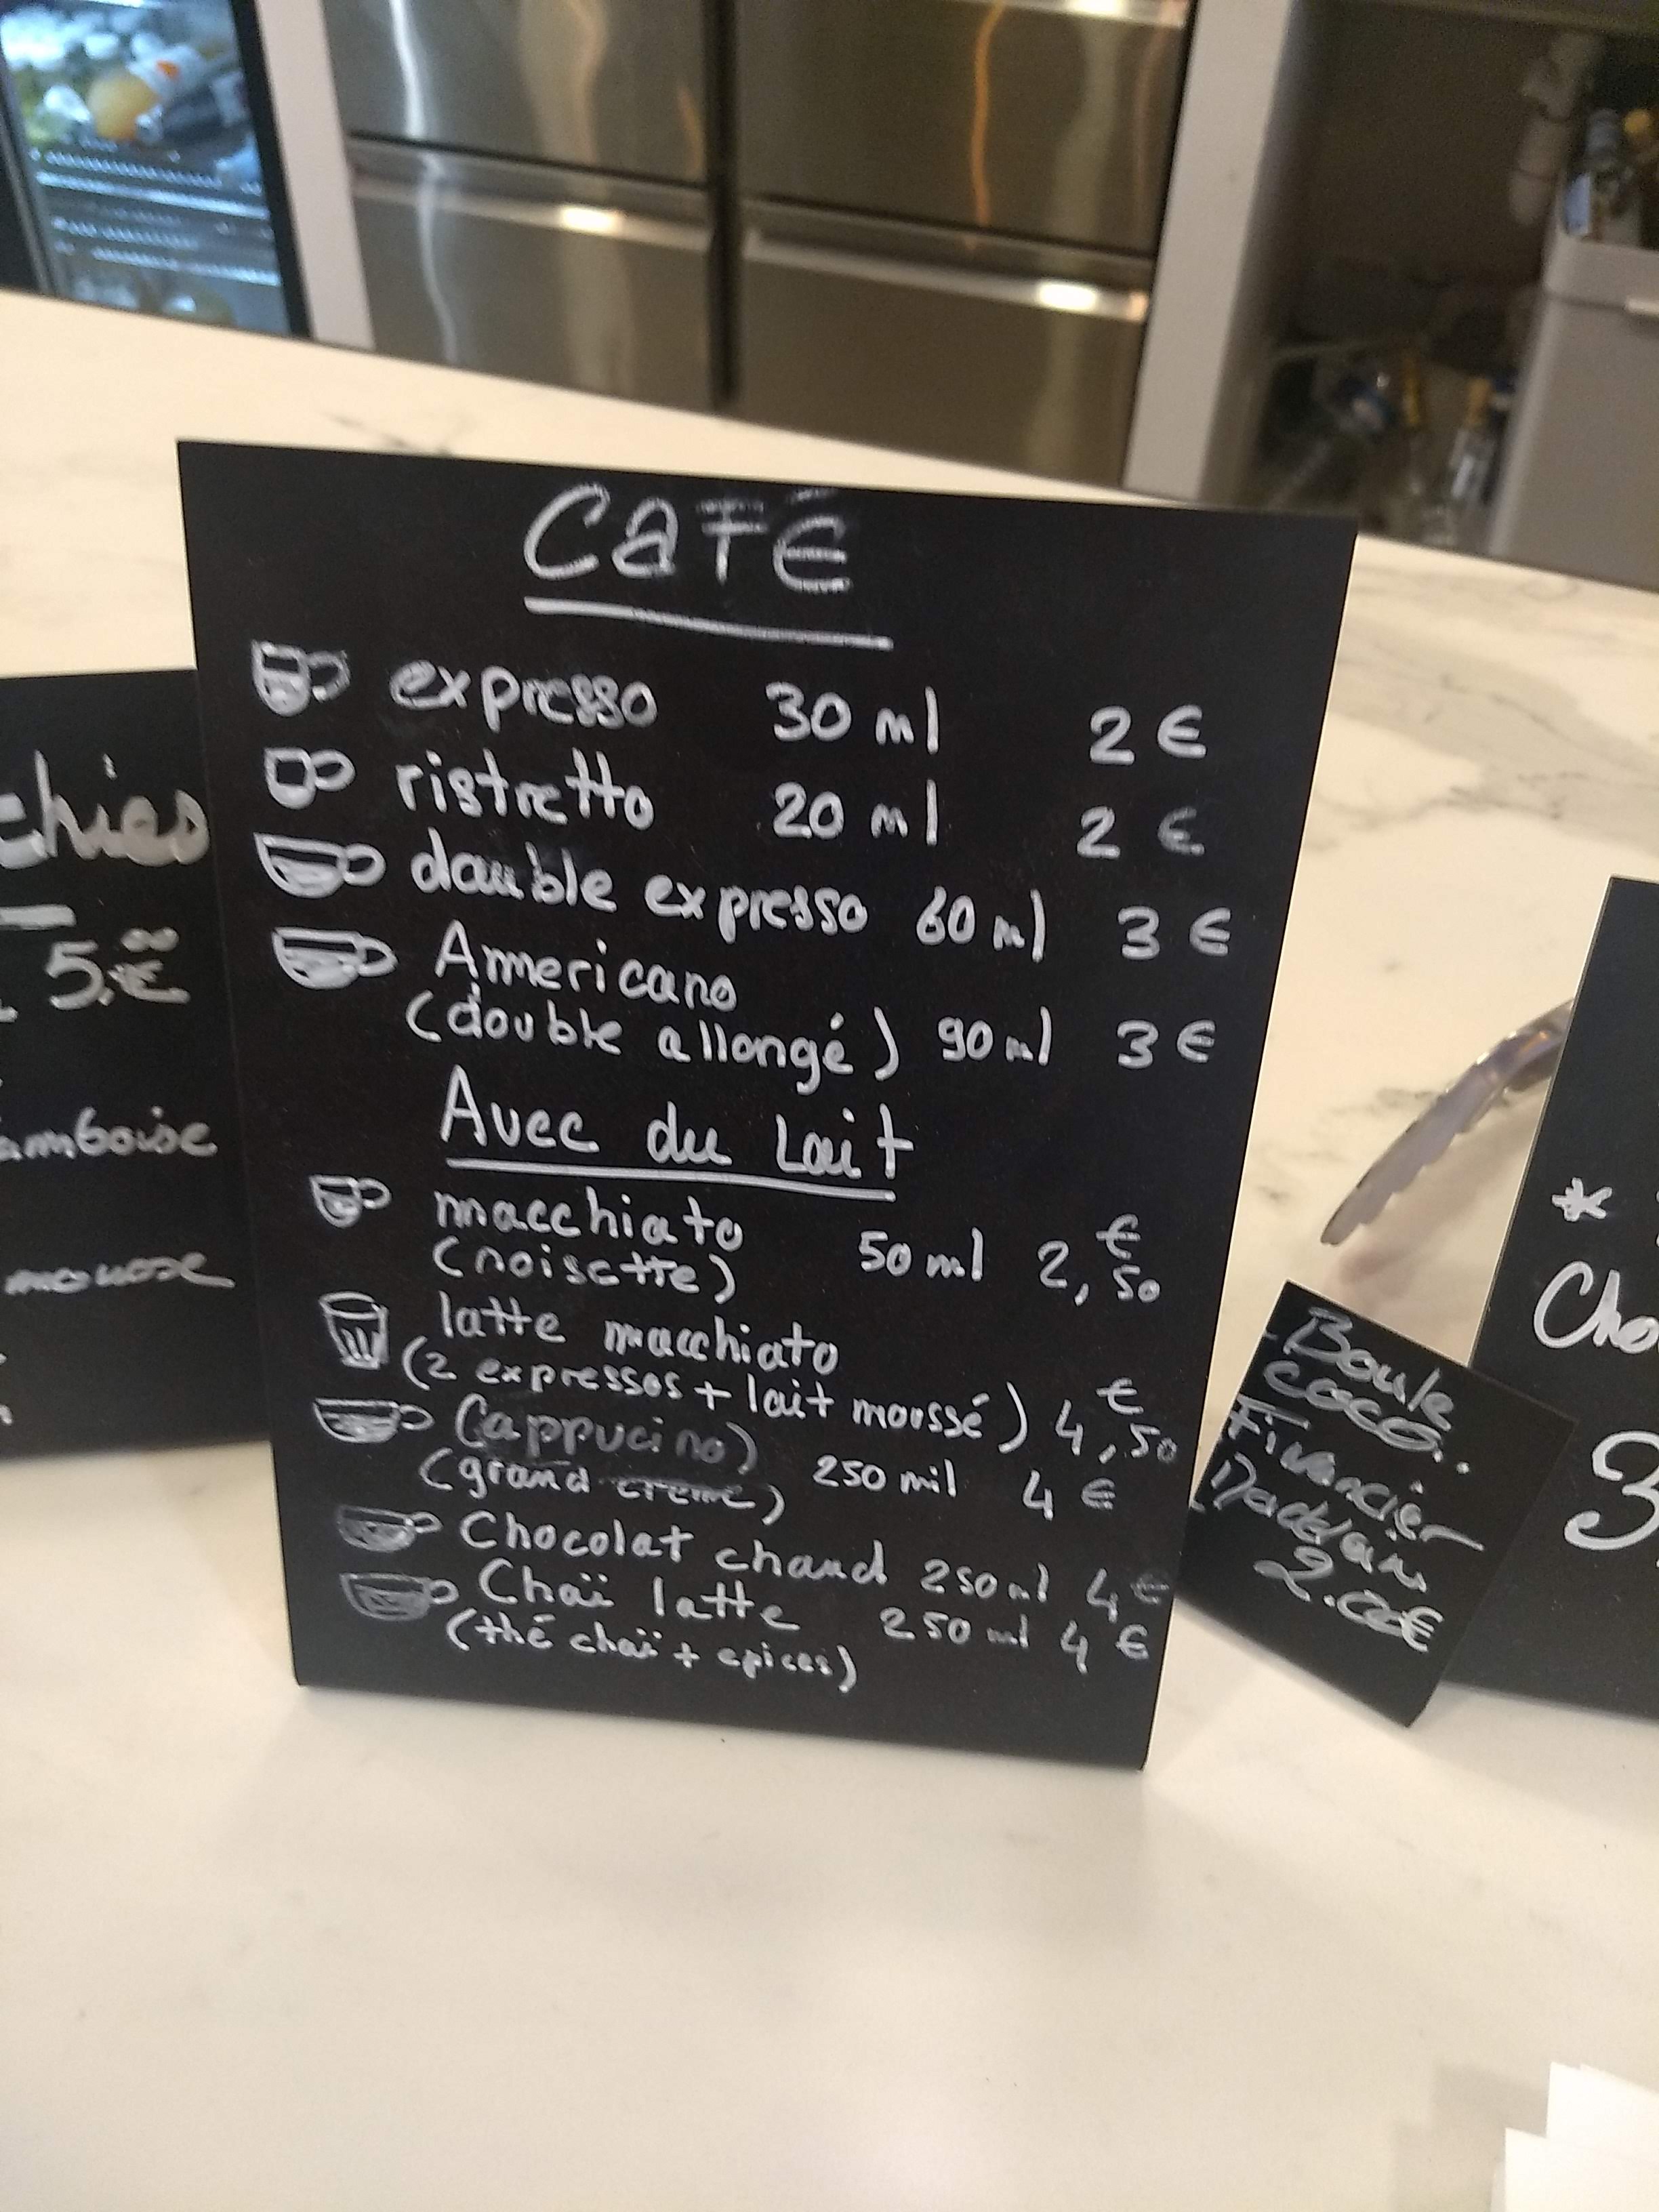 CaFé
expresso 30 ml 2 €
ristretto 20 ml 2 €
double expresso 60 ml 3 €
Americano
(double allongé) 90 ml 3 €
Avec du Lait
macchiato
(noisette) 50 ml 2,50 €
latte macchiato
(2 expressos + lait moussé) 4,50 €
Cappucino)
(grand crème) 250 mil 4 €
Chocolat chaud 250 ml 4 €
Chaï latte 250 ml 4 €
(thé chaï + epices)
chies
5.00 €
amboise
Boule
coco
Financier
2.00€
*
Cho
3